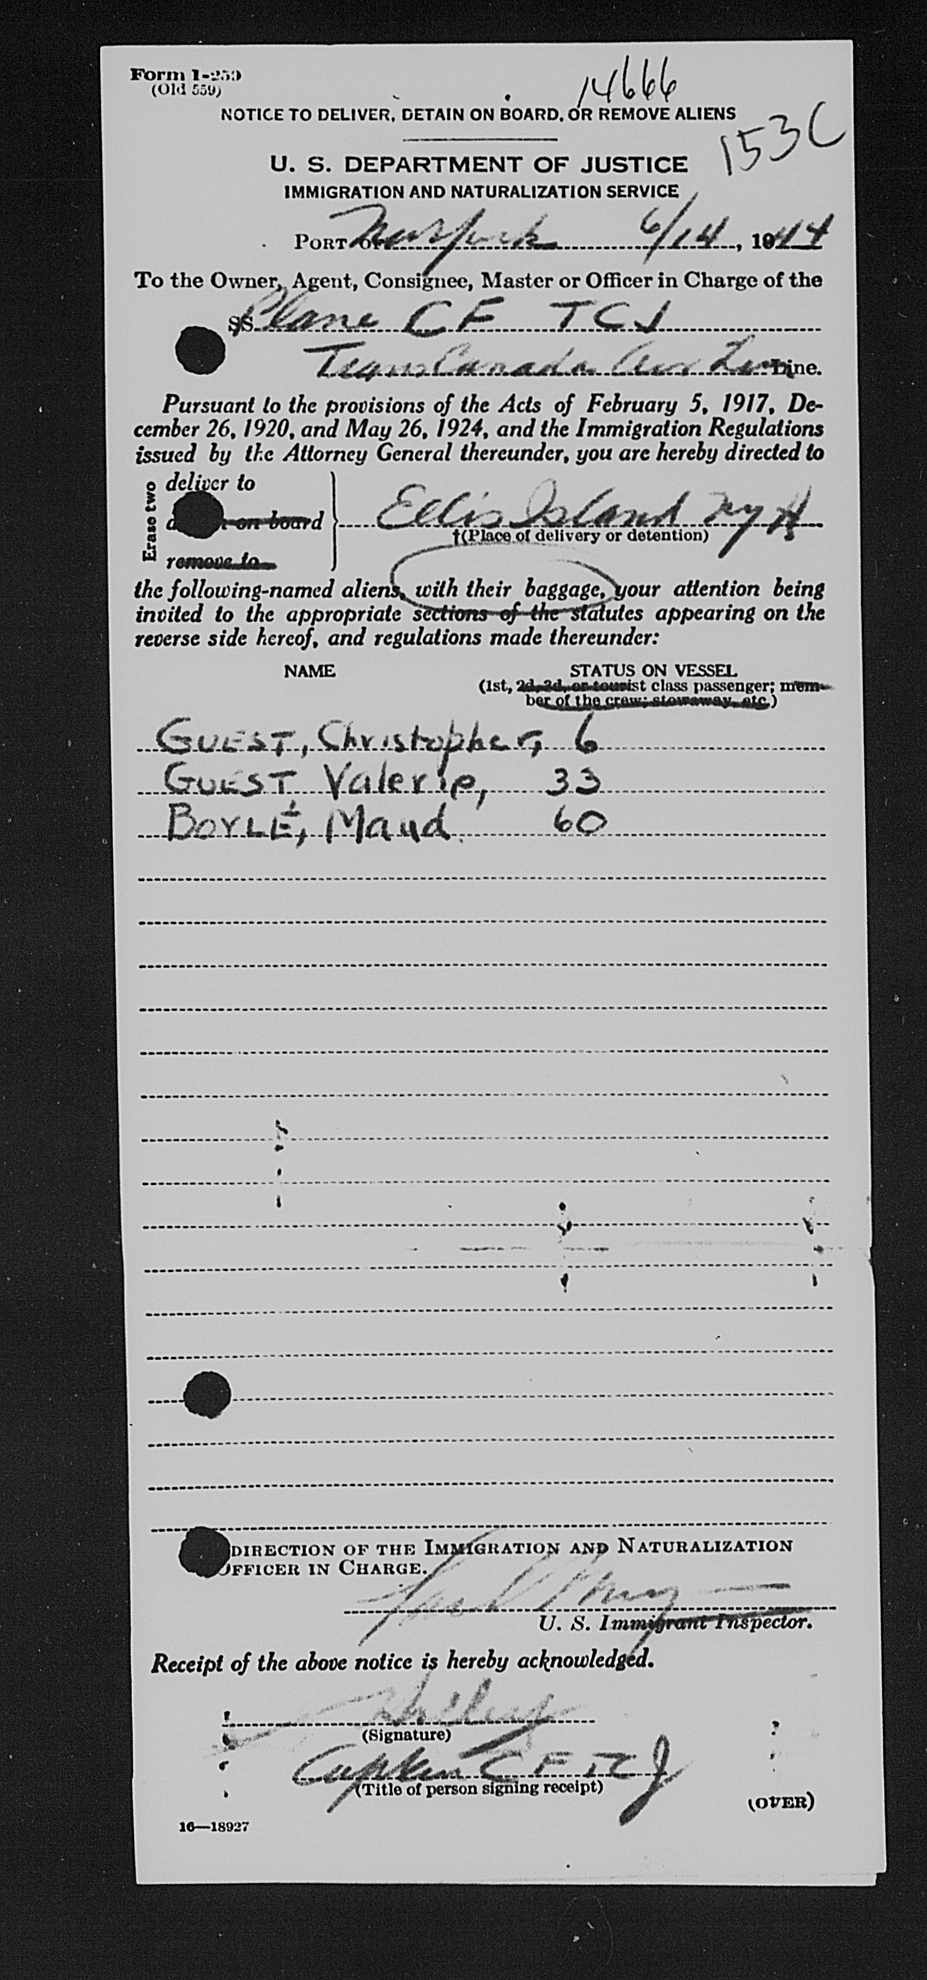 Form I-259
(Old 559)
14666
NOTICE TO DELIVER, DETAIN ON BOARD, OR REMOVE ALIENS
153C
U. S. DEPARTMENT OF JUSTICE
IMMIGRATION AND NATURALIZATION SERVICE
PORT OF New York 6/14, 1944
To the Owner, Agent, Consignee, Master or Officer in Charge of the
SS Plane CF TCJ
Trans Canada Air Line.
Pursuant to the provisions of the Acts of February 5, 1917, De-
cember 26, 1920, and May 26, 1924, and the Immigration Regulations
issued by the Attorney General thereunder, you are hereby directed to
Erase two
deliver to
on board Ellis Island NYH
†(Place of delivery or detention)
remove to
the following-named aliens, with their baggage, your attention being
invited to the appropriate sections of the statutes appearing on the
reverse side hereof, and regulations made thereunder:
NAME STATUS ON VESSEL
(1st, 2d, 3d, or tourist class passenger; mem-
ber of the crew; stowaway, etc.)
GUEST, Christopher, 6
GUEST Valerie, 33
BOYLE, Maud 60
DIRECTION OF THE IMMIGRATION AND NATURALIZATION
OFFICER IN CHARGE.
U. S. Immigrant Inspector.
Receipt of the above notice is hereby acknowledged.
(Signature)
Captain CF TCJ
(Title of person signing receipt)
(OVER)
16—18927